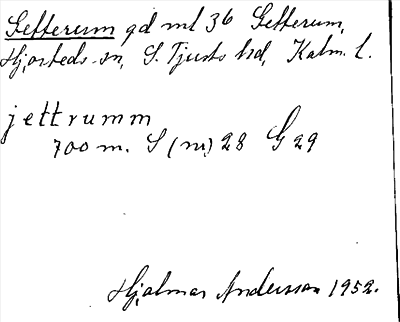 Getterum gd mt 36 Getterum,
Hjorteds sn, S. Tjusts hd, Kalm. l.
jettrumm
700 m. S (m) 28 G 29
Hjalmar Andersson 1952.